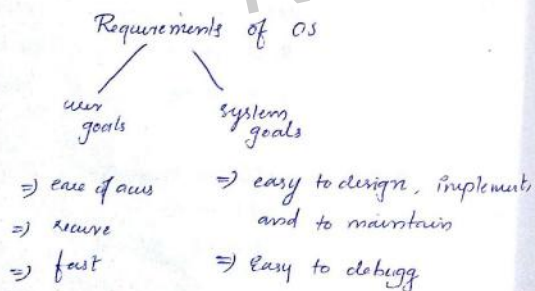 Requirements of OS
user goals
system goals
=) ease of acces
=) secure
=) fast
=) easy to design, implement, and to maintain
=) Easy to debugg